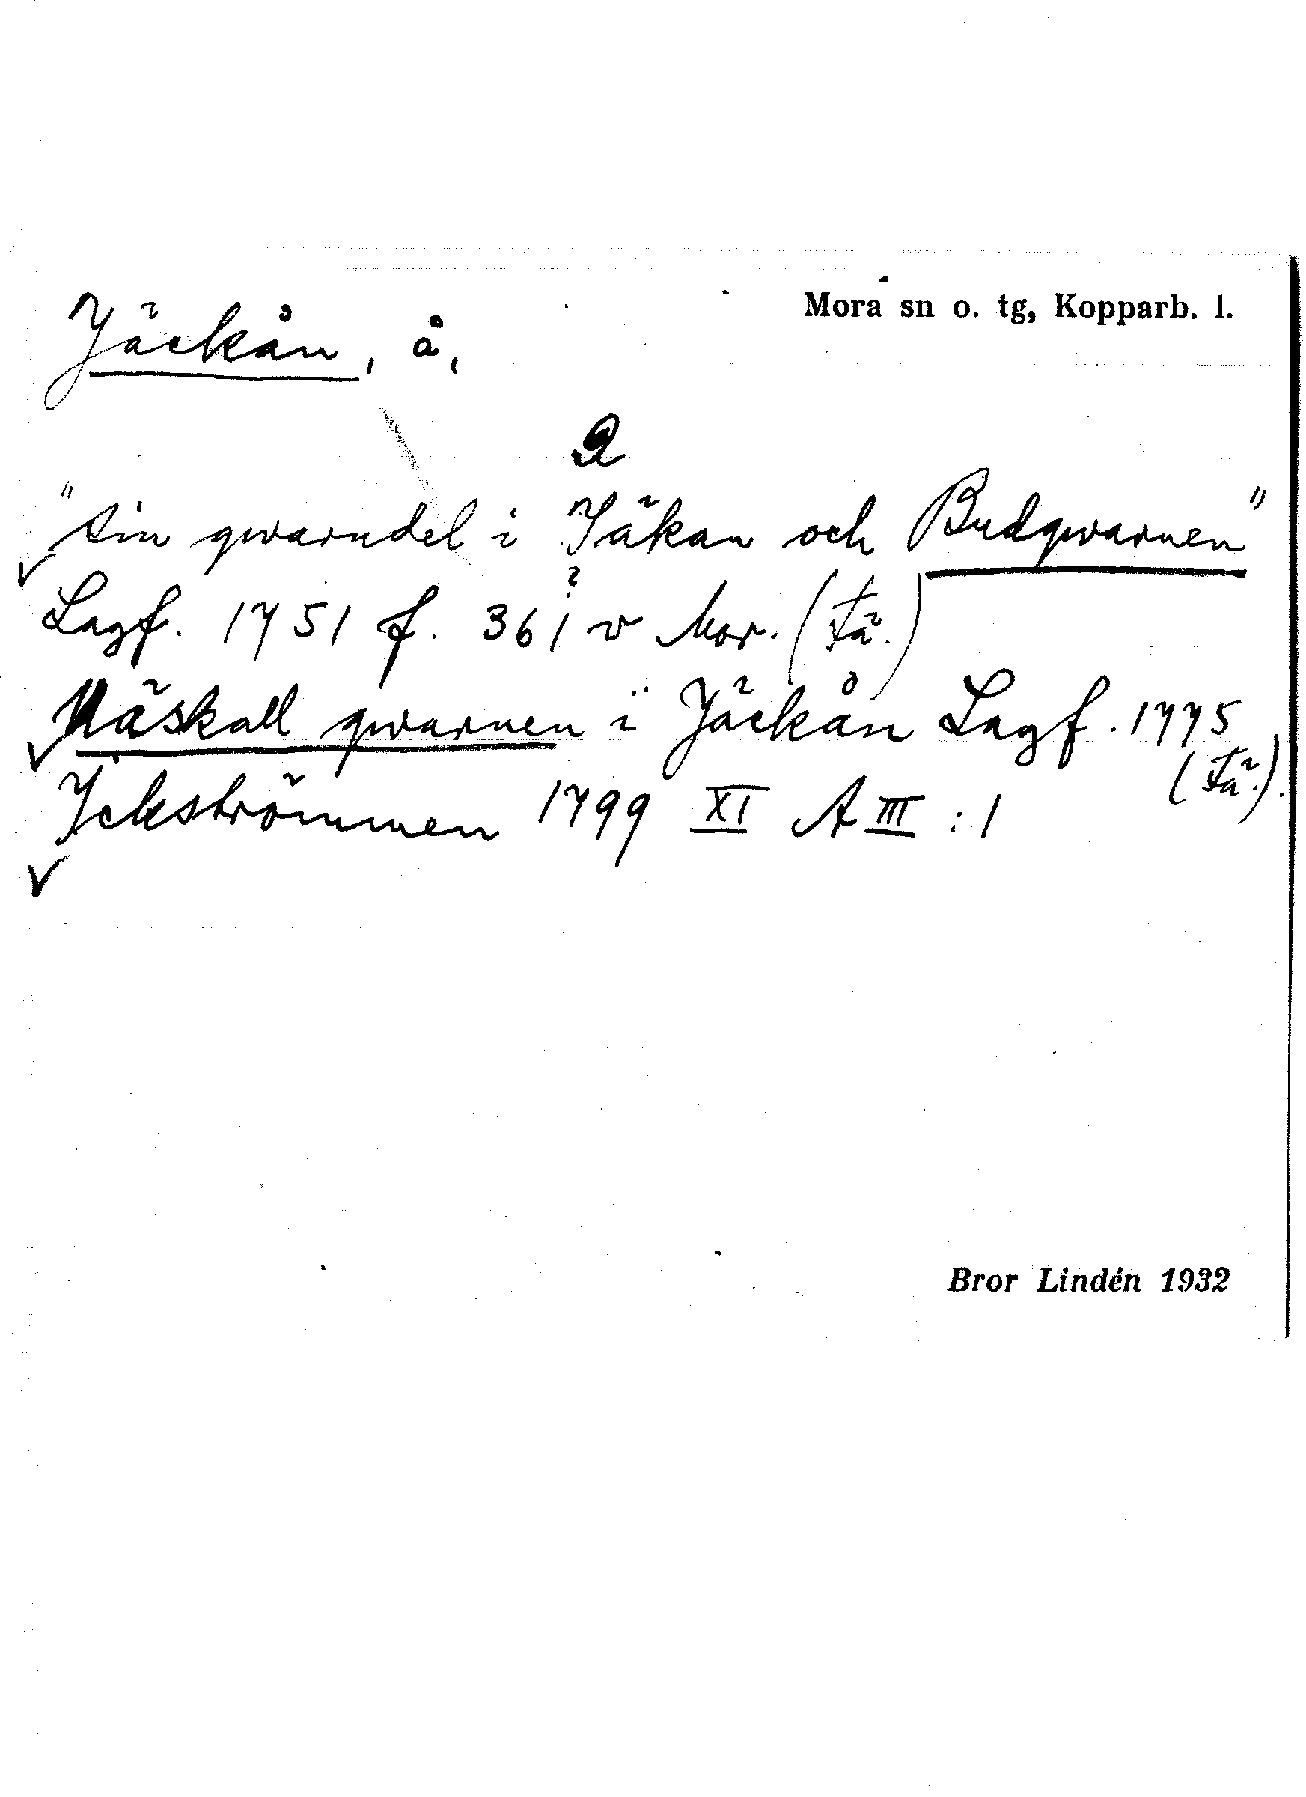 Mora sn o. tg, Kopparb. l.
Jäckån, å,
2
"sin qwarndel i Jäkan och Budqwarnen"
?
Lagf. 1751 f. 361 v Mor. (Fä.)
Näskall qwarnen i Jäckån Lagf. 1775
(Fä.).
Jckströmmen 1799 XI A III : 1
Bror Lindén 1932